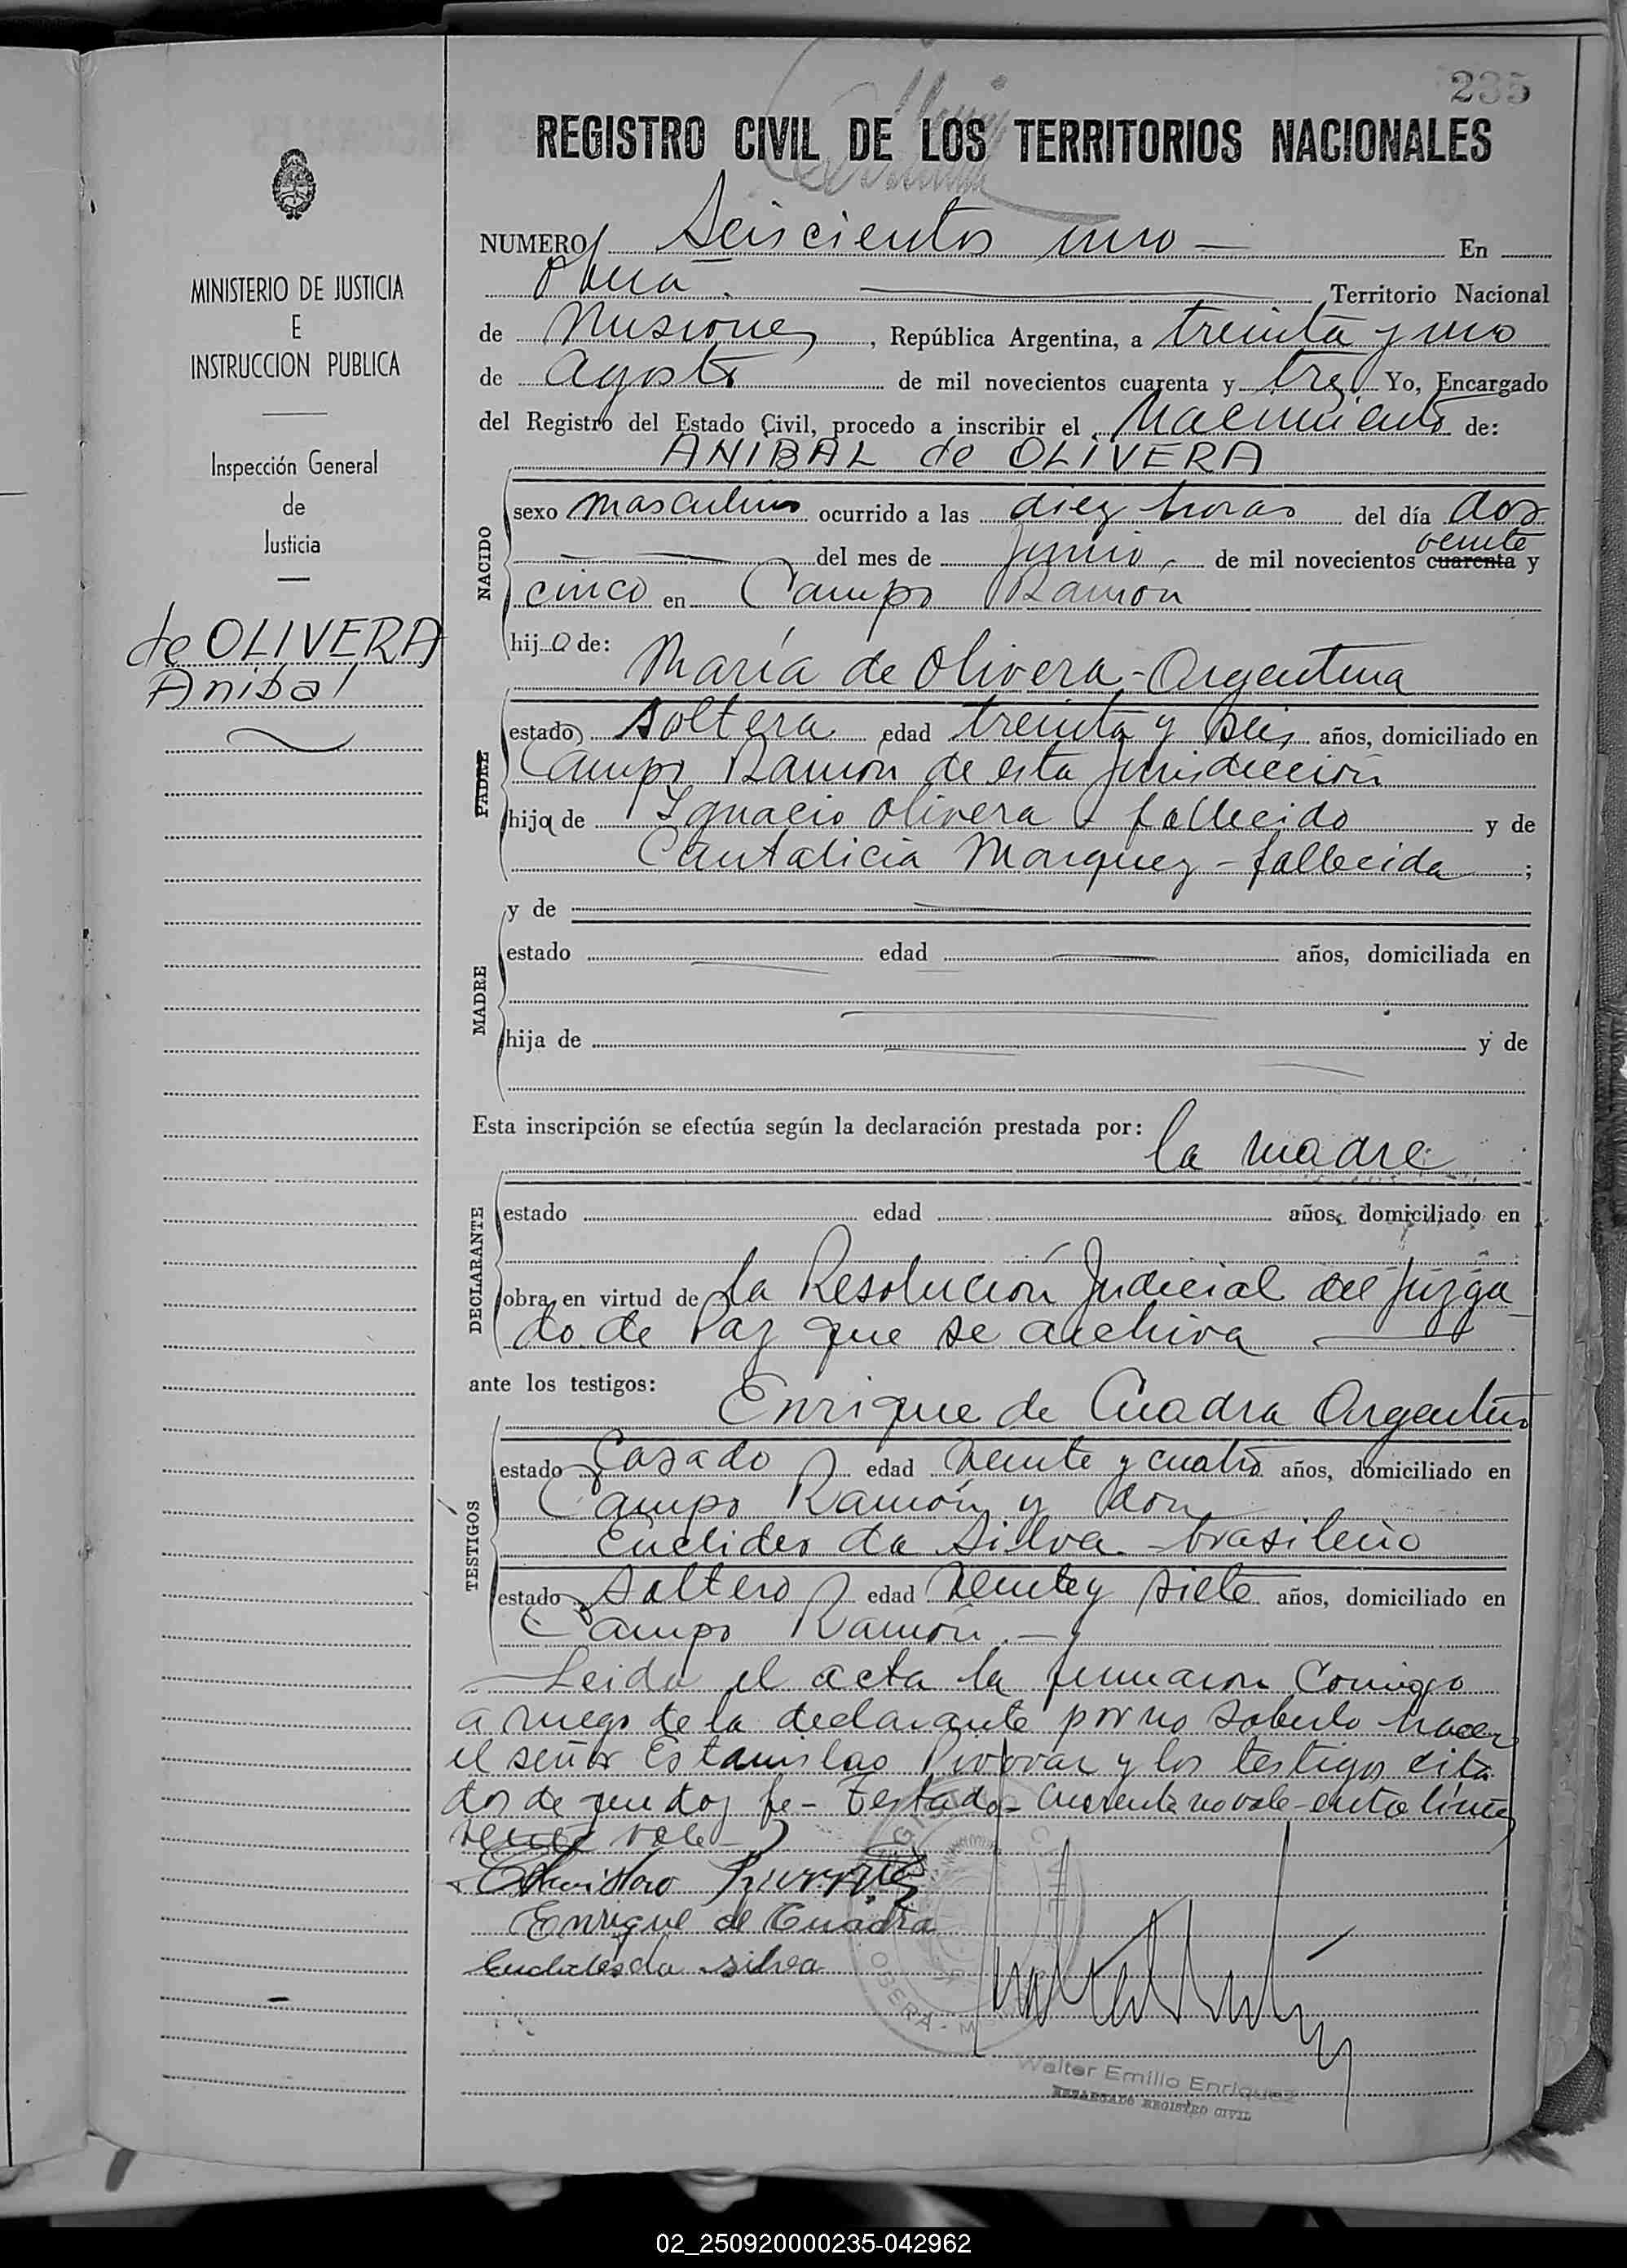 235
REGISTRO CIVIL DE LOS TERRITORIOS NACIONALES
NUMERO Seiscientos uno — En
Oberá. Territorio Nacional
de Misiones, República Argentina, a treinta y uno
de Agosto de mil novecientos cuarenta y tres Yo, Encargado
del Registro del Estado Civil, procedo a inscribir el Nacimiento de:
ANIBAL de OLIVERA
NACIDO
sexo masculino ocurrido a las diez horas del día dos
veinte
del mes de Junio, de mil novecientos cuarenta y
cinco en Campo Ramón
hijo de:
María de Olivera - Argentina
PADRE
estado soltera edad treinta y seis años, domiciliado en
Campo Ramón de esta jurisdicción
hijo de Ignacio Olivera - fallecido y de
Cantalicia Marquez - fallecida ;
MADRE
y de
estado edad años, domiciliada en
hija de y de
Esta inscripción se efectúa según la declaración prestada por:
la madre
DECLARANTE
estado edad años, domiciliado en
obra en virtud de la Resolución Judicial del Juzga
do de Paz que se archiva
ante los testigos:
Enrique de Cuadra Argentino
TESTIGOS
estado Casado edad veinte y cuatro años, domiciliado en
Campo Ramón y don
Euclides da Silva - brasileño
estado soltero edad veinte y siete años, domiciliado en
Campo Ramón. —
Leida el acta la firmaron Conmigo
a ruego de la declarante por no saberlo hacer
el señor Estanislao y los testigos cita
dos de que doy fe - Testado - cuarenta no vale - entre líneas
veinte vale -
Enrique de Cuadra
Euclides da silva
OBERÁ - M
Walter Emilio Enriquez
ENCARGADO REGISTRO CIVIL
MINISTERIO DE JUSTICIA
E
INSTRUCCION PUBLICA
Inspección General
de
Justicia
de OLIVERA
Anibal
02_250920000235-042962